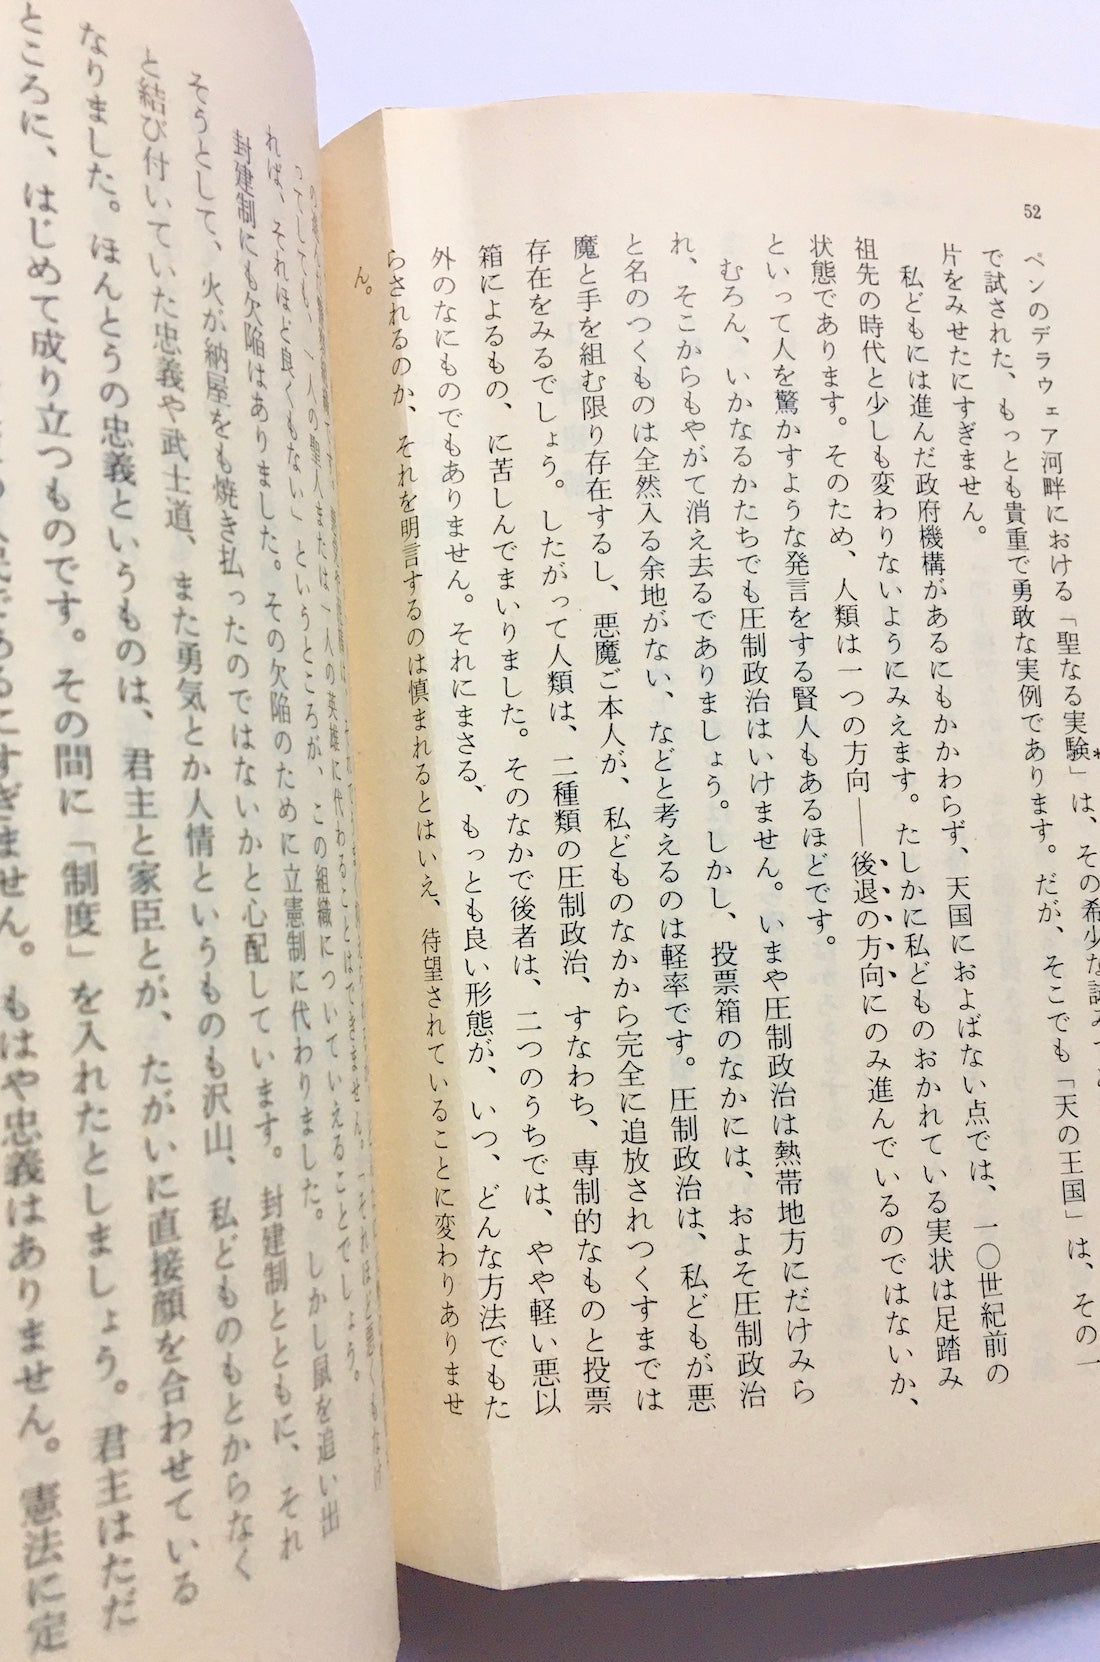 52
ペンのデラウェア河畔における「聖なる実験*」は、その希少な試みで
で試された、もっとも貴重で勇敢な実例であります。だが、そこでも「天の王国」は、その一
片をみせたにすぎません。
私どもには進んだ政府機構があるにもかかわらず、天国におよばない点では、一〇世紀前の
祖先の時代と少しも変わりないようにみえます。たしかに私どものおかれている実状は足踏み
状態であります。そのため、人類は一つの方向――後退の方向にのみ進んでいるのではないか、
といって人を驚かすような発言をする賢人もあるほどです。
むろん、いかなるかたちでも圧制政治はいけません。いまや圧制政治は熱帯地方にだけみら
れ、そこからもやがて消え去るでありましょう。しかし、投票箱のなかには、およそ圧制政治
と名のつくものは全然入る余地がない、などと考えるのは軽率です。圧制政治は、私どもが悪
魔と手を組む限り存在するし、悪魔ご本人が、私どものなかから完全に追放されつくすまでは
存在をみるでしょう。したがって人類は、二種類の圧制政治、すなわち、専制的なものと投票
箱によるもの、に苦しんでまいりました。そのなかで後者は、二つのうちでは、やや軽い悪以
外のなにものでもありません。それにまさる、もっとも良い形態が、いつ、どんな方法でもた
らされるのか、それを明言するのは慎まれるとはいえ、待望されていることに変わりありませ
ん。
ってしても、一人の聖人または一人の英雄に代わることはできません。「それほど悪くもなけ
れば、それほど良くもない」というところが、この組織についていえることでしょう。
封建制にも欠陥はありました。その欠陥のために立憲制に代わりました。しかし鼠を追い出
そうとして、火が納屋をも焼き払ったのではないかと心配しています。封建制とともに、それ
と結び付いていた忠義や武士道、また勇気とか人情というものも沢山、私どものもとからなく
なりました。ほんとうの忠義というものは、君主と家臣とが、たがいに直接顔を合わせている
ところに、はじめて成り立つものです。その間に「制度」を入れたとしましょう。君主はただ
にすぎません。もはや忠義はありません。憲法に定